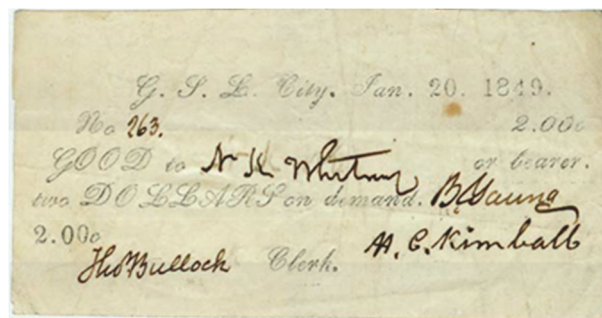 G. S. L. City. Jan. 20. 1849.
No 263. 2.00c
GOOD to N K Whitney or bearer.
two DOLLARS on demand. B Young
2.00c H. C. Kimball
Tho Bullock Clerk.